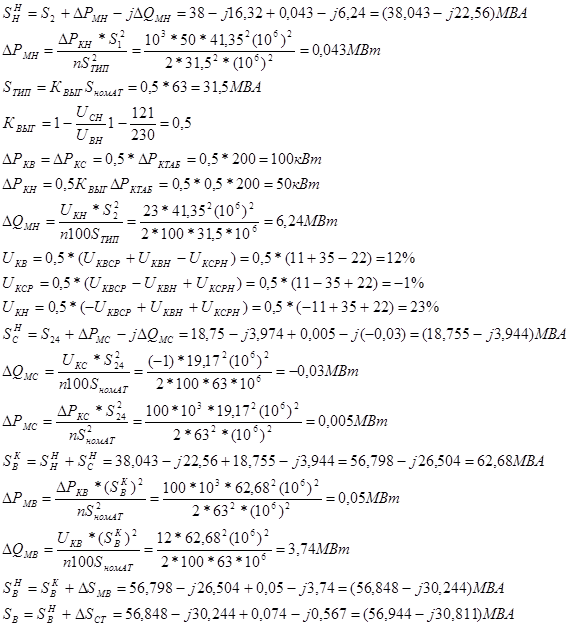 S_H^H = S_2 + ΔP_MH − jΔQ_MH = 38 − j16,32 + 0,043 − j6,24 = (38,043 − j22,56)МВА
ΔP_MH = (ΔP_KH * S_1^2)/(nS_ТИП^2) = (10^3 * 50 * 41,35^2(10^6)^2)/(2 * 31,5^2 * (10^6)^2) = 0,043МВт
S_ТИП = K_ВЫГ S_номАТ = 0,5 * 63 = 31,5МВА
K_ВЫГ = 1 − (U_CH/U_BH) 1 − (121/230) = 0,5
ΔP_KB = ΔP_KC = 0,5 * ΔP_КТАБ = 0,5 * 200 = 100кВт
ΔP_KH = 0,5K_ВЫГ ΔP_КТАБ = 0,5 * 0,5 * 200 = 50кВт
ΔQ_MH = (U_KH * S_2^2)/(n100S_ТИП) = (23 * 41,35^2(10^6)^2)/(2 * 100 * 31,5 * 10^6) = 6,24МВт
U_KB = 0,5 * (U_КВСР + U_КВН − U_КСРН) = 0,5 * (11 + 35 − 22) = 12%
U_КСР = 0,5 * (U_КВСР − U_КВН + U_КСРН) = 0,5 * (11 − 35 + 22) = −1%
U_KH = 0,5 * (−U_КВСР + U_КВН + U_КСРН) = 0,5 * (−11 + 35 + 22) = 23%
S_C^H = S_24 + ΔP_MC − jΔQ_MC = 18,75 − j3,974 + 0,005 − j(−0,03) = (18,755 − j3,944)МВА
ΔQ_MC = (U_KC * S_24^2)/(n100S_номАТ) = ((−1) * 19,17^2(10^6)^2)/(2 * 100 * 63 * 10^6) = −0,03МВт
ΔP_MC = (ΔP_KC * S_24^2)/(nS_номАТ^2) = (100 * 10^3 * 19,17^2(10^6)^2)/(2 * 63^2 * (10^6)^2) = 0,005МВт
S_B^K = S_H^H + S_C^H = 38,043 − j22,56 + 18,755 − j3,944 = 56,798 − j26,504 = 62,68МВА
ΔP_MB = (ΔP_KB * (S_B^K)^2)/(nS_номАТ^2) = (100 * 10^3 * 62,68^2(10^6)^2)/(2 * 63^2 * (10^6)^2) = 0,05МВт
ΔQ_MB = (U_KB * (S_B^K)^2)/(n100S_номАТ) = (12 * 62,68^2(10^6)^2)/(2 * 100 * 63 * 10^6) = 3,74МВт
S_B^H = S_B^K + ΔS_MB = 56,798 − j26,504 + 0,05 − j3,74 = (56,848 − j30,244)МВА
S_B = S_B^H + ΔS_CT = 56,848 − j30,244 + 0,074 − j0,567 = (56,944 − j30,811)МВА